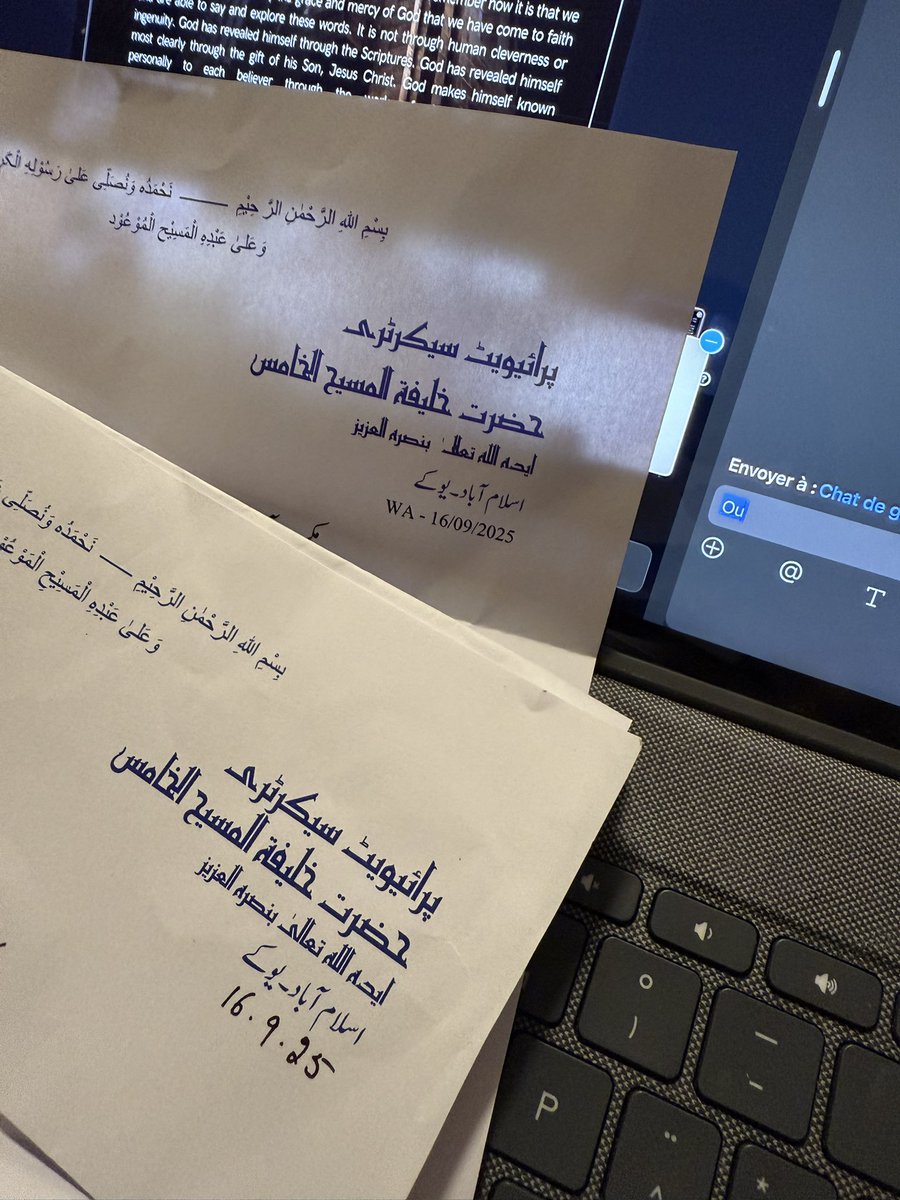 the grace and mercy of God that we have come to faith
are able to say and explore these words. It is not through human cleverness or
ingenuity. God has revealed himself through the Scriptures. God has revealed himself
most clearly through the gift of his Son, Jesus Christ. God makes himself known
personally to each believer through the
بِسْمِ اللهِ الرَّحْمٰنِ الرَّحِيْمِ —— نَحْمَدُه وَنُصَلِّى عَلىٰ رَسُوْلِهِ
وَعَلىٰ عَبْدِهِ الْمَسِيْحِ الْمُوْعُوْد
پرائیویٹ سیکرٹری
حضرت خلیفة المسیح الخامس
ایدہ اللہ تعالیٰ بنصرہ العزیز
اسلام آباد۔یوکے
WA - 16/09/2025
بِسْمِ اللهِ الرَّحْمٰنِ الرَّحِيْمِ —— نَحْمَدُه وَنُصَلِّى
وَعَلىٰ عَبْدِهِ الْمَسِيْحِ
پرائیویٹ سیکرٹری
حضرت خلیفة المسیح الخامس
ایدہ اللہ تعالیٰ بنصرہ العزیز
اسلام آباد۔یوکے
16.9.25
Envoyer à : Chat de
Ou
@
T
°
)
P
¨
^
*